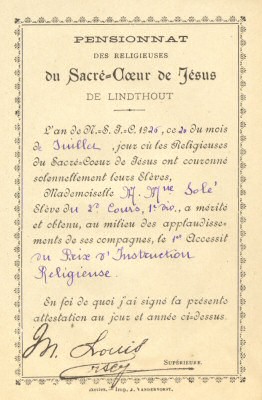 PENSIONNAT
DES RELIGIEUSES
du Sacré-Cœur de Jésus
DE LINDTHOUT
L'an de N.-S. J.-C. 1926, ce 20 du mois
de Juillet, jour où les Religieuses
du Sacré-Coeur de Jésus ont couronné
solennellement leurs Elèves,
Mademoiselle M. Mne Solé
Elève du 2e Cours, 1e div., a mérité
et obtenu, au milieu des applaudisse-
ments de ses compagnes, le 1er Accessit
du Prix d'Instruction
Religieuse.
En foi de quoi j'ai signé la présente
attestation au jour et année ci-dessus.
M. Louis
SUPÉRIEURE.